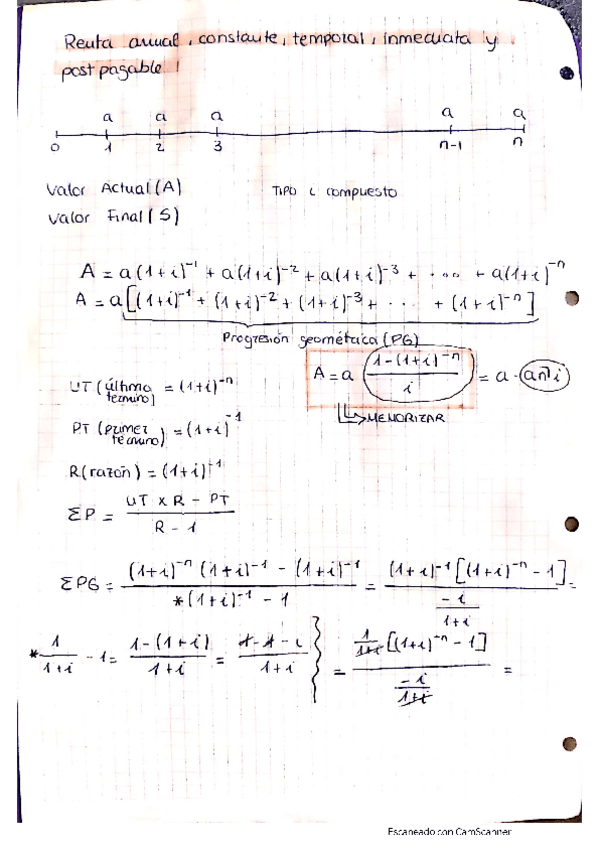 Renta anual, constante, temporal, inmediata y
postpagable!
a a a a a
0 1 2 3 n-1 n
Valor Actual (A) TIPO i compuesto
Valor Final (S)
A = a(1+i)^-1 + a(1+i)^-2 + a(1+i)^-3 + ... + a(1+i)^-n
A = a[(1+i)^-1 + (1+i)^-2 + (1+i)^-3 + ... + (1+i)^-n]
Progresión geométrica (PG)
A = a (1-(1+i)^-n / i) = a · an̅|i
MEMORIZAR
UT (último término) = (1+i)^-n
PT (primer término) = (1+i)^-1
R (razón) = (1+i)^-1
ΣP = (UT x R - PT) / (R - 1)
ΣPG = ((1+i)^-n (1+i)^-1 - (1+i)^-1) / (*(1+i)^-1 - 1) = ((1+i)^-1 [(1+i)^-n - 1]) / (-i / 1+i) =
* 1/(1+i) - 1 = (1-(1+i)) / (1+i) = (1-1-i) / (1+i) } = (1/(1+i) [(1+i)^-n - 1]) / (-i / 1+i) =
Escaneado con CamScanner